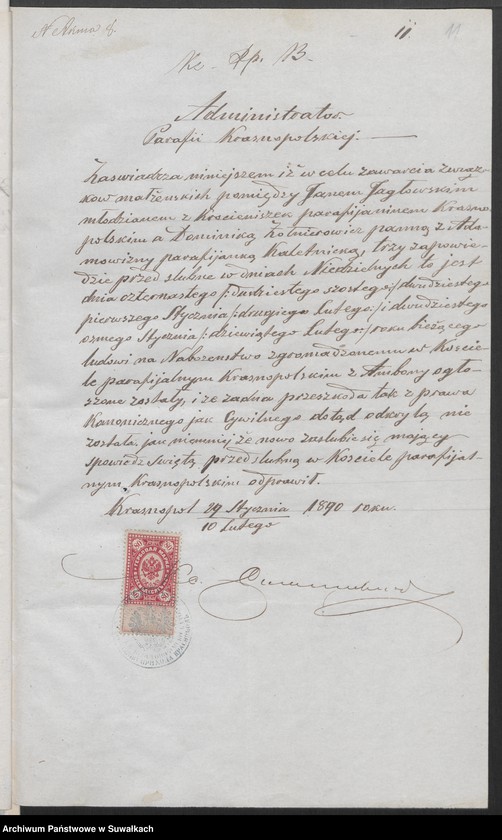 N Akna 8.
11. 11
Ks. Pp. 13.
Administrator
Parafii Krasnopolskiej.
Zaświadcza niniejszem iż w celu zawarcia związ-
ków małżeńskich pomiędzy Janem Jagłowskim
młodzianem z Kościeniszek parafijaninem Krasno
polskim a Dominiką Żołnierowicz panną z Ada-
mowizny parafijanką Kaletnicką, trzy zapowie-
dzie przedślubne w dniach Niedzielnych to jest
dnia czternastego /: dwudziestego szostego :/ dwudziestego
pierwszego Stycznia /: drugiego Lutego :/ i dwudziestego
osmego Stycznia /: dziewiątego Lutego :/ roku bieżącego
ludowi na Nabożeństwo zgromadzonemu w Koście-
le parafijalnym Krasnopolskim z Ambony ogło-
szone zostały, i że żadna przeszkoda tak z prawa
Kanonicznego jak Cywilnego dotąd odkrytą nie
została, jak niemniej że nowo zaślubić się mający
spowiedź świętą przedślubną w Kościele parafijal-
nym Krasnopolskim odprawił.
Krasnopol 29 Stycznia 1890 roku.
10 Lutego
Archiwum Państwowe w Suwałkach